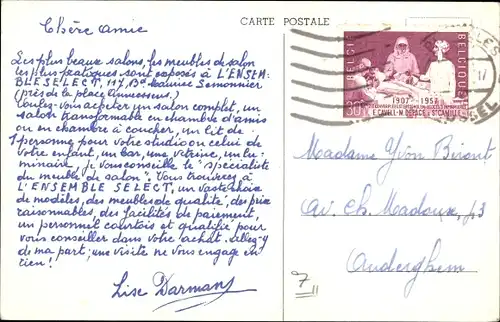 CARTE POSTALE
Chère amie
Les plus beaux salons, les meubles de salon
les plus pratiques sont exposés à L'ENSEM-
BLE SELECT, 117, Bd Maurice Lemonnier
(près de la place Anneessens).
Voulez-vous acheter un salon complet, un
salon transformable en chambre d'amis
ou en chambre à coucher, un lit de
1 personne pour votre studio ou celui de
votre enfant, un bar, une vitrine, un lu-
minaire, je vous conseille le "spécialiste
du meuble de salon". Vous trouverez à
L'ENSEMBLE SELECT, un vaste choix
de modèles, des meubles de qualité, des prix
raisonnables, des facilités de paiement,
un personnel courtois et qualifié pour
vous conseiller dans votre achat. Allez-y
de ma part; une visite ne vous engage en
rien!
Lise Darmans
BELGIE BELGIQUE
30c
1907 - 1957
E. CAVELL-M. DEPAGE & ST CAMILLE
17
Madame Yvon
Av. Ch. Madoux, 43
Auderghem
7